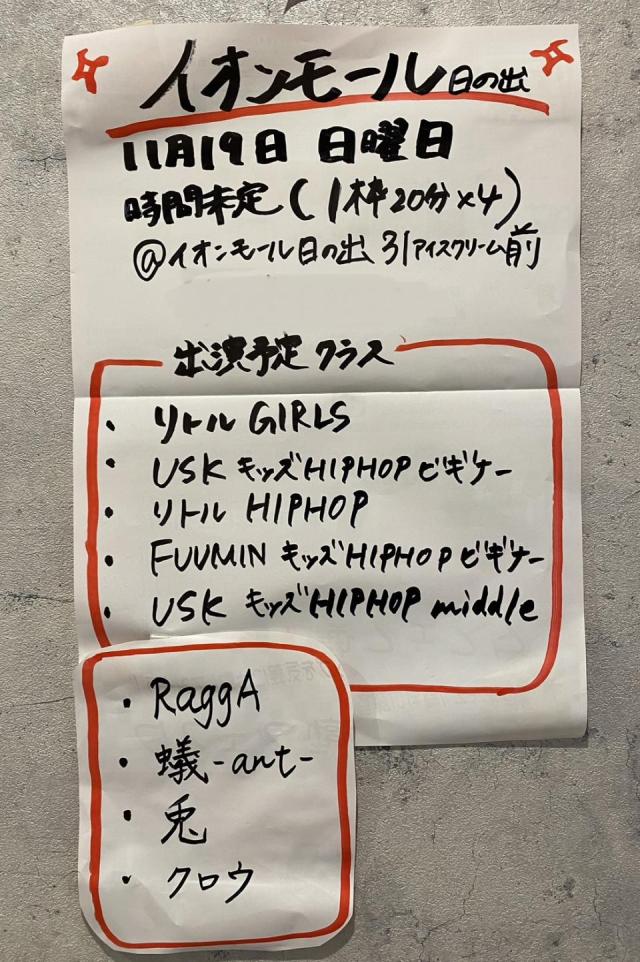 イオンモール日の出
11月19日 日曜日
時間未定(1枠20分×4)
@イオンモール日の出 31アイスクリーム前
出演予定クラス
・リトル GIRLS
・USK キッズHIPHOP ビギナー
・リトル HIPHOP
・FUUMIN キッズHIPHOP ビギナー
・USK キッズHIPHOP middle
・RaggA
・蟻-ant-
・兎
・クロウ